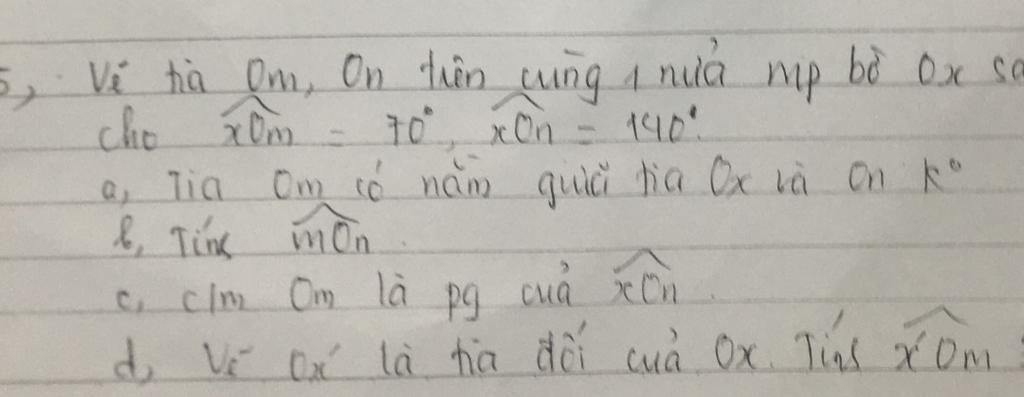 5, Vẽ tia Om, On trên cùng 1 nửa mp bờ Ox sa
cho xOm = 70°, xOn = 140°.
a, Tia Om có nằm giữa tia Ox và On k°
b, Tính mOn.
c, c/m Om là pg của xOn.
d, Vẽ Ox' là tia đối của Ox. Tính x'Om